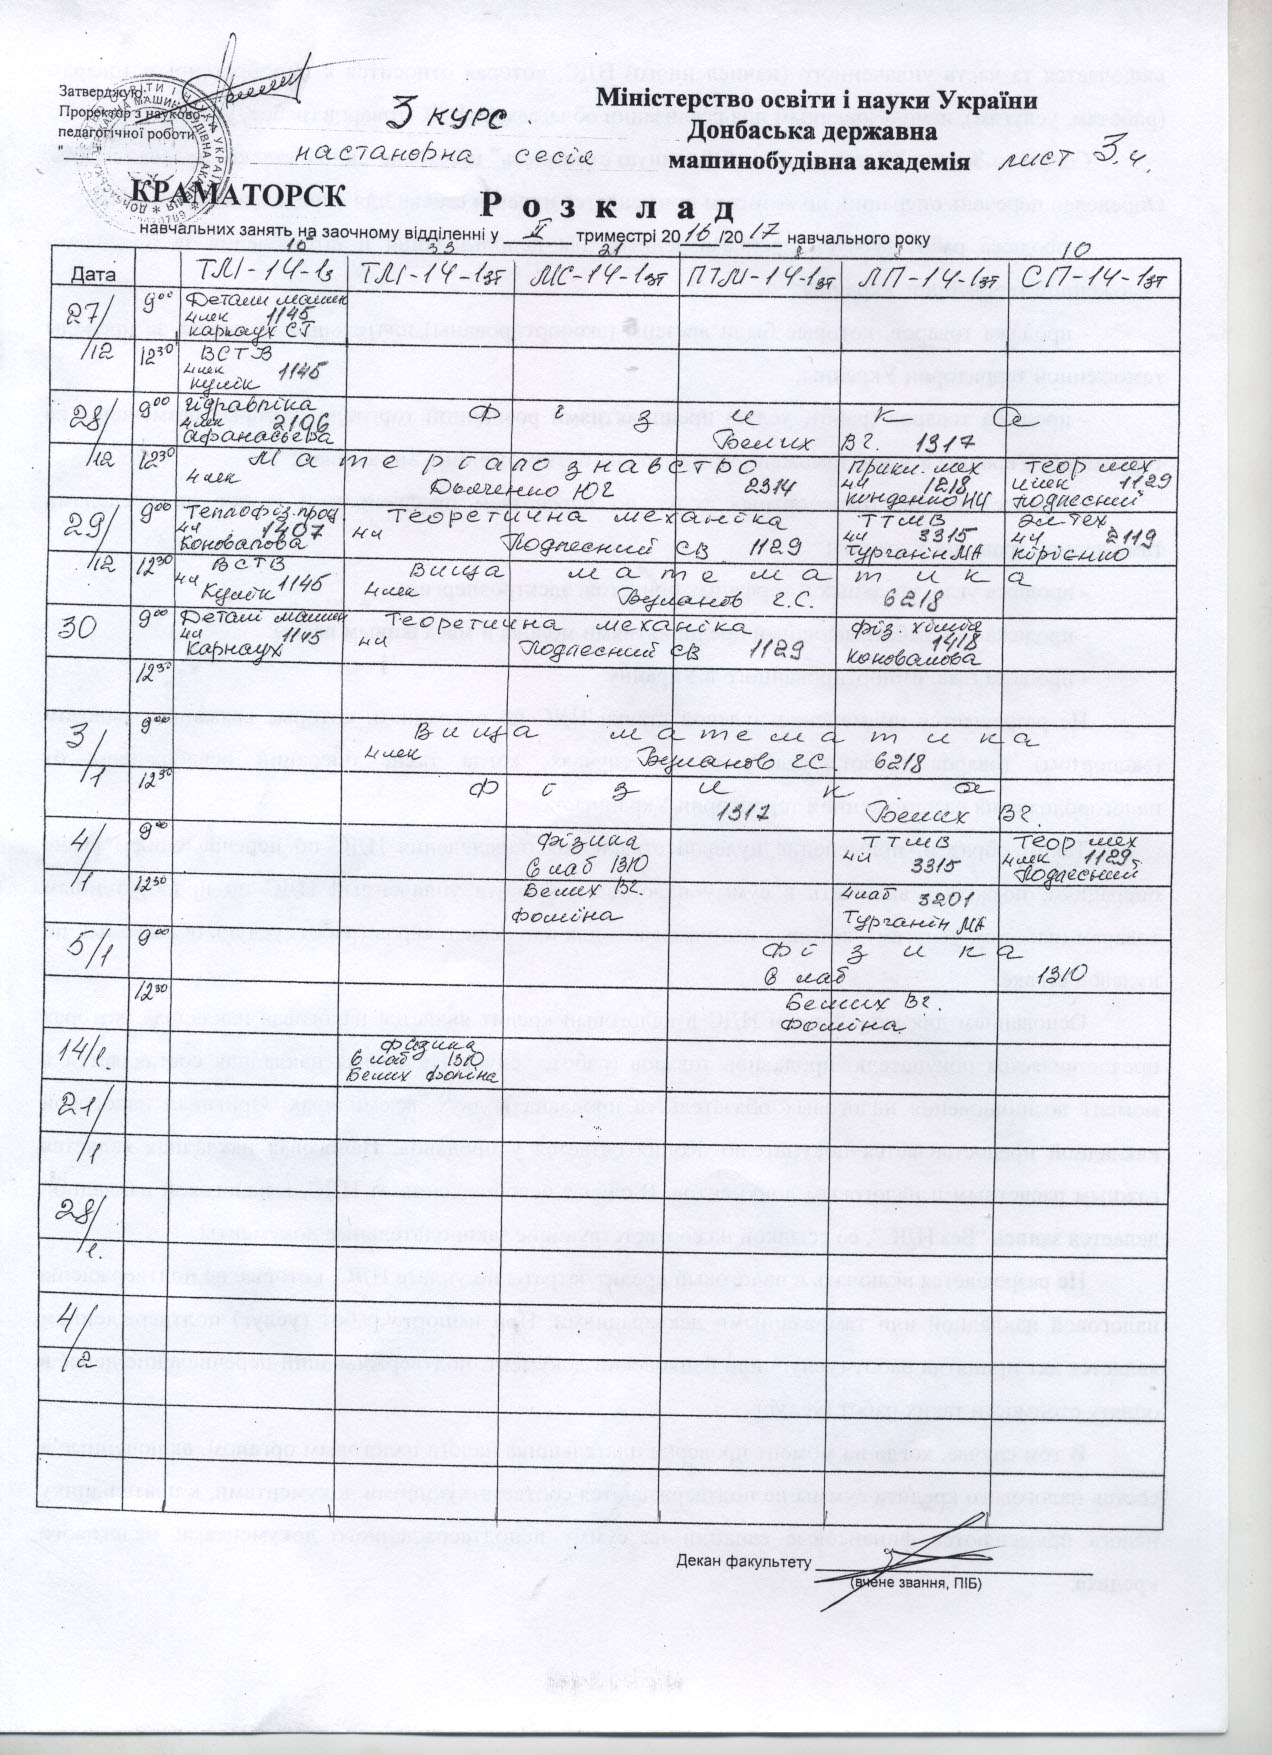 Затверджую:
Проректор з науково-
педагогічної роботи
3 курс
настановна сесія
Міністерство освіти і науки України
Донбаська державна
машинобудівна академія
лист 3.ч.
КРАМАТОРСК
Розклад
навчальних занять на заочному відділенні у II триместрі 2016/2017 навчального року
33 21 10
Дата ТМ-14-1з ТМ-14-1зт МС-14-1зт ПТМ-14-1зт ЛП-14-1зт СП-14-1зт
27/12 9⁰⁰ Детали машин
4лек 1145
Карнаух СГ
12³⁰ ВСТВ
4лек 1145
Кулік
28/12 9⁰⁰ Гідравліка Фізика
4лек 2106
Афанасьєва Белих ВГ. 1317
12³⁰ Матеріалознавство Прикл. мех Теор мех
4лек Дьяченко ЮГ 2314 4ч 1218 4лек 1129
Подлесний
29/12 9⁰⁰ Теплофіз. проц. Теоретична механіка ТТМВ Эл. тех
4ч 1407 4ч Подлесний СВ 1129 4ч 3315 4ч 2119
Коновалова Турганін МА Кірієнко
12³⁰ ВСТВ Вища математика
4ч 1145 4лек Буланов Г.С. 6218
Кулік
30 9⁰⁰ Деталі машин Теоретична механіка Фіз. хімія
4ч 1145 4ч Подлесний СВ 1129 1418
Карнаух Коновалова
12³⁰
3/1 9⁰⁰ Вища математика
4лек Буланов Г.С. 6218
12³⁰ Фізика
1317 Белих ВГ.
4/1 9⁰⁰ Фізика ТТМВ Теор мех
6 лаб 1310 4ч 3315 4лек 1129
Подлесний
12³⁰ Белих ВГ. 4лаб 3201
Фоміна Турганін МА
5/1 9⁰⁰ Фізика
6 лаб 1310
12³⁰ Белих ВГ.
Фоміна
14/1 Фізика
6 лаб 1310
Белих Фоміна
21/1
28/1.
4/2
Декан факультету
(вчене звання, ПІБ)